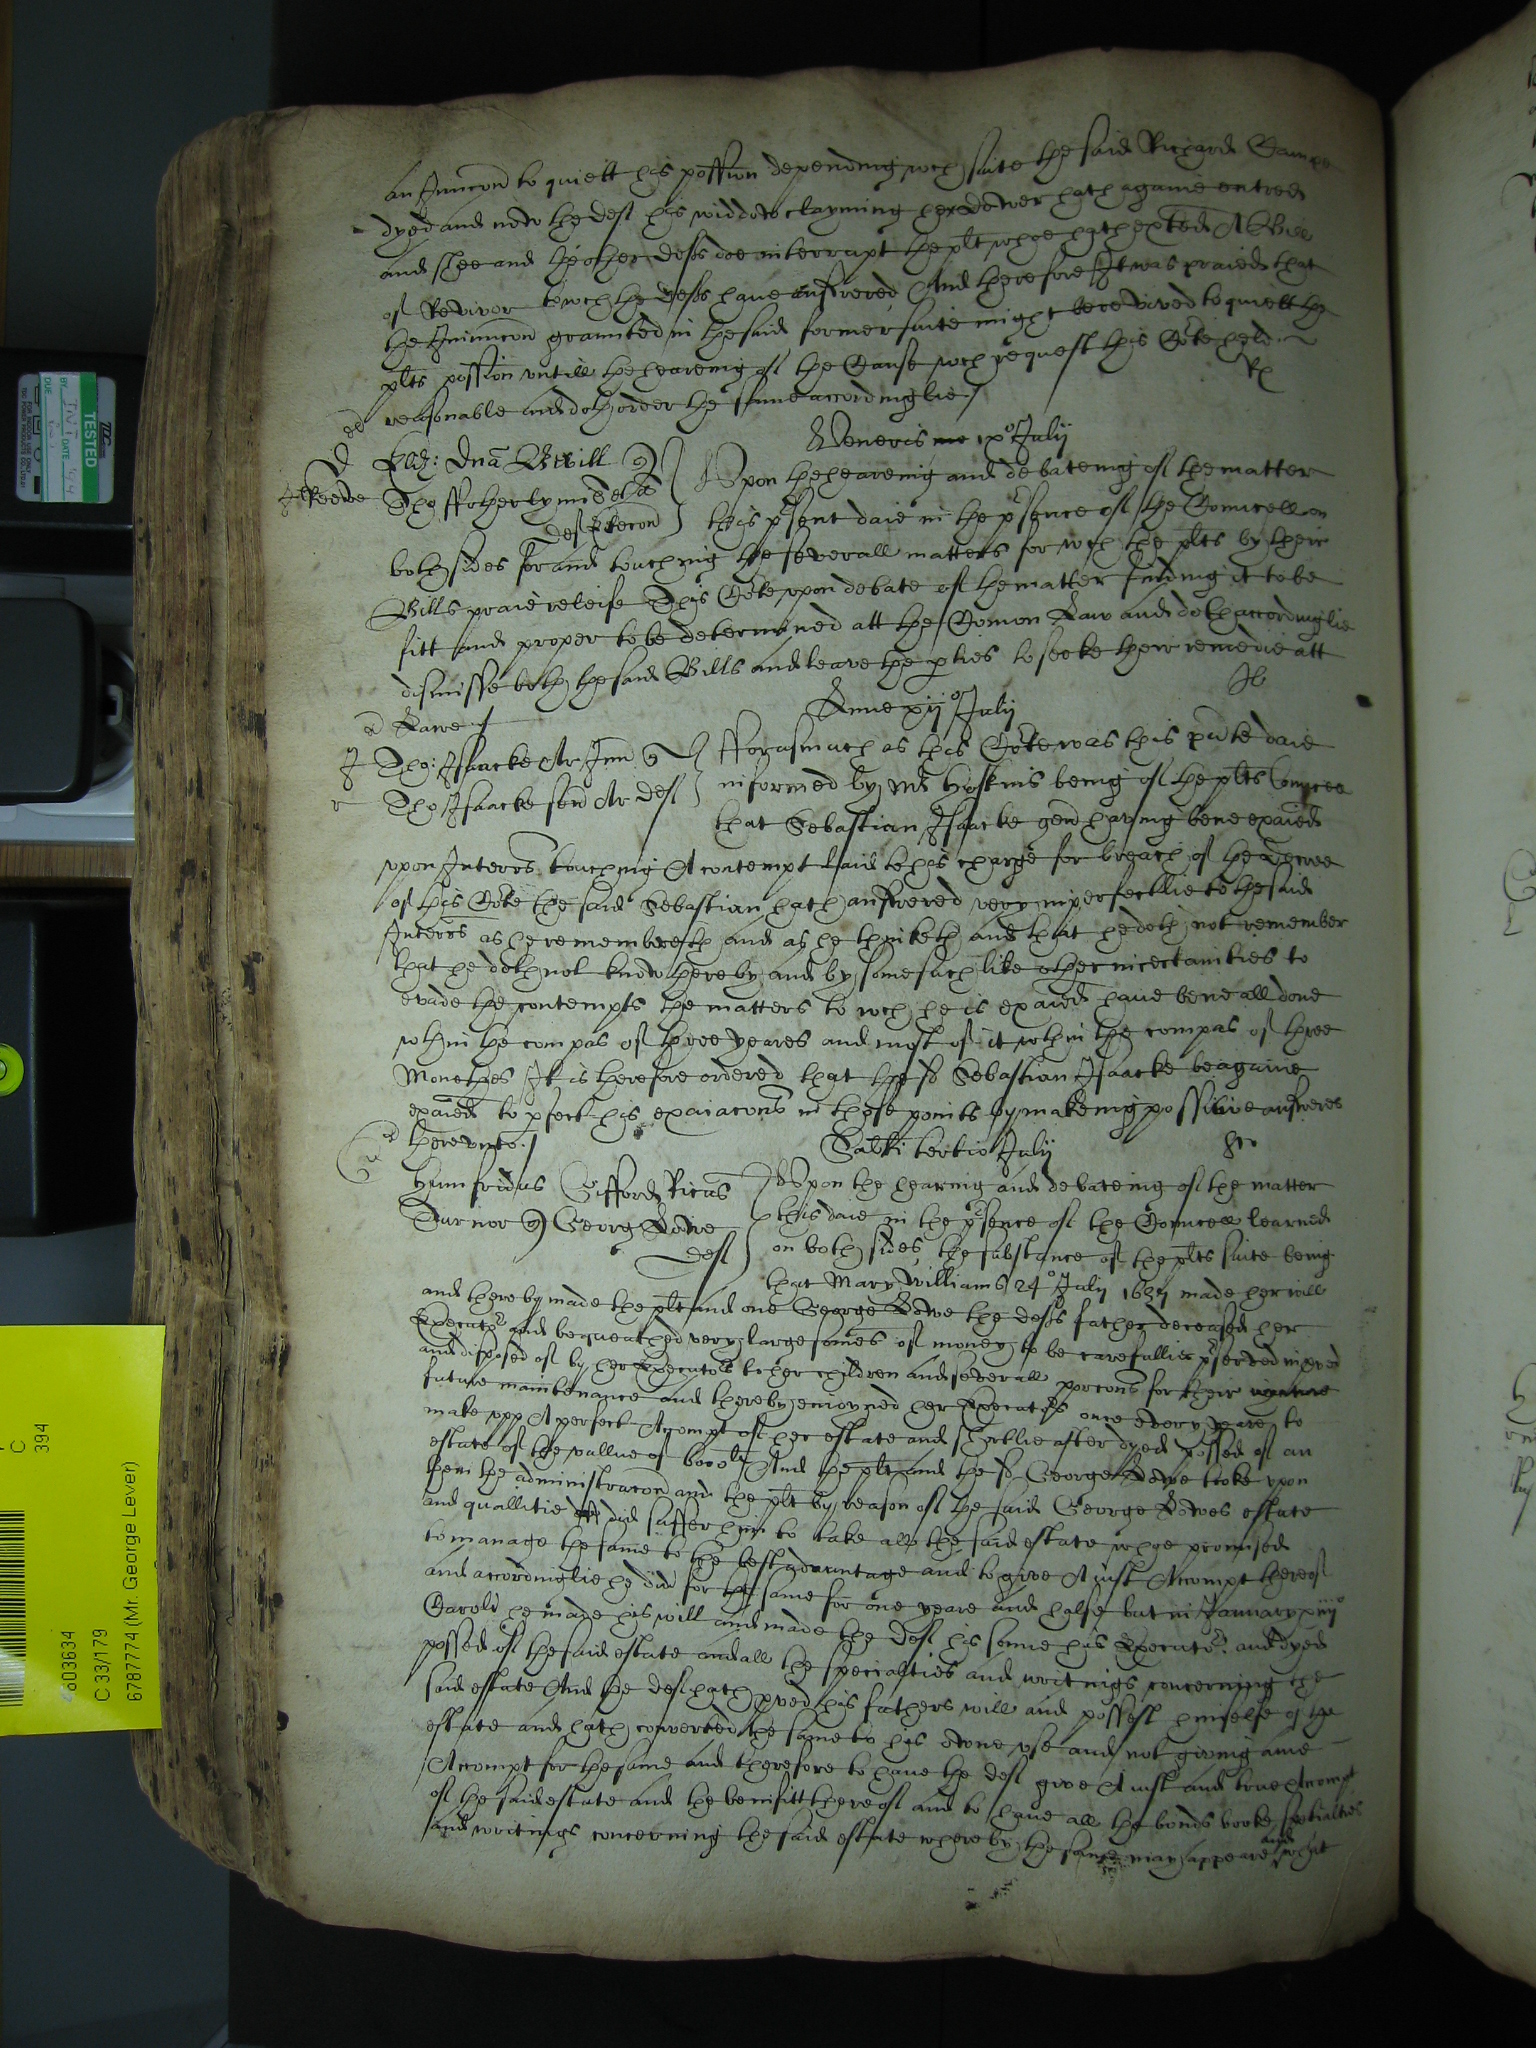 an Iniuncon to quiett his possion depending wch suite the said Richard
dyed and now the deft his widdow clayming her dower hath againe entred
and shee and the other defts doe interrupt the plt whoe hath exhted A Bill
of Revivor to wch the defts haue answered And therefore It was praied that
the Iniuncon graunted in the said former suite might bee revived to quiett the
plts possion vntill the heareing of the Cause wch request this Cort held
reasonable and doth order the same accordinglie /
Veneris ixo July
Upon the heareing and debateing of the matter
this pñsent daie in the pñsence of the Councell on
both sides for and touching the severall matters for wch the plts by their
Bills praie releife This Cort vpon debate of the matter finding it to be
fitt and proper to be determined att the Comon Law and doth accordinglie
dismisse both the said Bills and leave the pties to seeke their remedie att
Lawe /
Lune xijo July
Tho: Isaacke Ar Iun
Tho Isaacke sen Ar deft
fforasmuch as this Cort was this pñte daie
informed by Mr Hoskins being of the plts Councell
that Sebastian Isaacke gen having bene exaied
vpon Interrs touching A contempt laid to his charge for breach of the decree
of this Cort the said Sebastian hath answered very imperfectlie to the said
Interrs as he remembreth and as he thinketh and that he doth not remember
that he doth not know thereby and by some such like other incertainties to
evade the contempts the matters to wch he is exaied haue bene all done
wthin the compas of three yeares and most of it wthin the compas of three
Monethes It is therefore ordered that the sd Sebastian Isaacke be againe
exaied to pfect his exaiacons in those points by makeing possitive answeres
therevnto /
Sabti tertio July
Humfridus Gifford Ricus
Turnor Georg Lowe
deft
Upon the hearing and debateing of the matter
this daie in the pñsence of the Councell learned
on both sides the substance of the plts suite being
that Mary Williams 24o July 1637 made her will
and thereby made the plt and one George Lowe the defts father deceased her
Executors and bequeathed very large somes of money to be carefullie pñserved
and disposed of by her Executors to her children and severall porcons for their
future maintenance and thereby enioyned her Executors once every yeare to
make vpp A perfect Accompt of her estate and shortlie after dyed possed of an
estate of the vallue of 6000l And the plt and the sd George Lowe tooke vpon
them the administracon and the plt by reason of the said George Lowes estate
and quallitie did suffer him to take all the said estate whoe promised
to manage the same to the best advantage and to give A iust Accompt thereof
and accordinglie he did for the same for one yeare and halfe but in January xiiijo
Caroli he made his will and made the deft his sonne his Executor and dyed
possed of the said estate and all the specialties and writings concerning the
said estate And the deft hath pved his fathers will and possest himselfe of the
estate and hath converted the same to his owne vse and not giving anie
Accompt for the same and therefore to haue the deft give A iust and true Accompt
of the said estate and the benifitt thereof and to haue all the bonds books spetialties
and writings concerning the said estate whereby the same may appeare and what
TESTED
DATE
DUE
C
394
C 33/179
6787774 (Mr. George Lever)